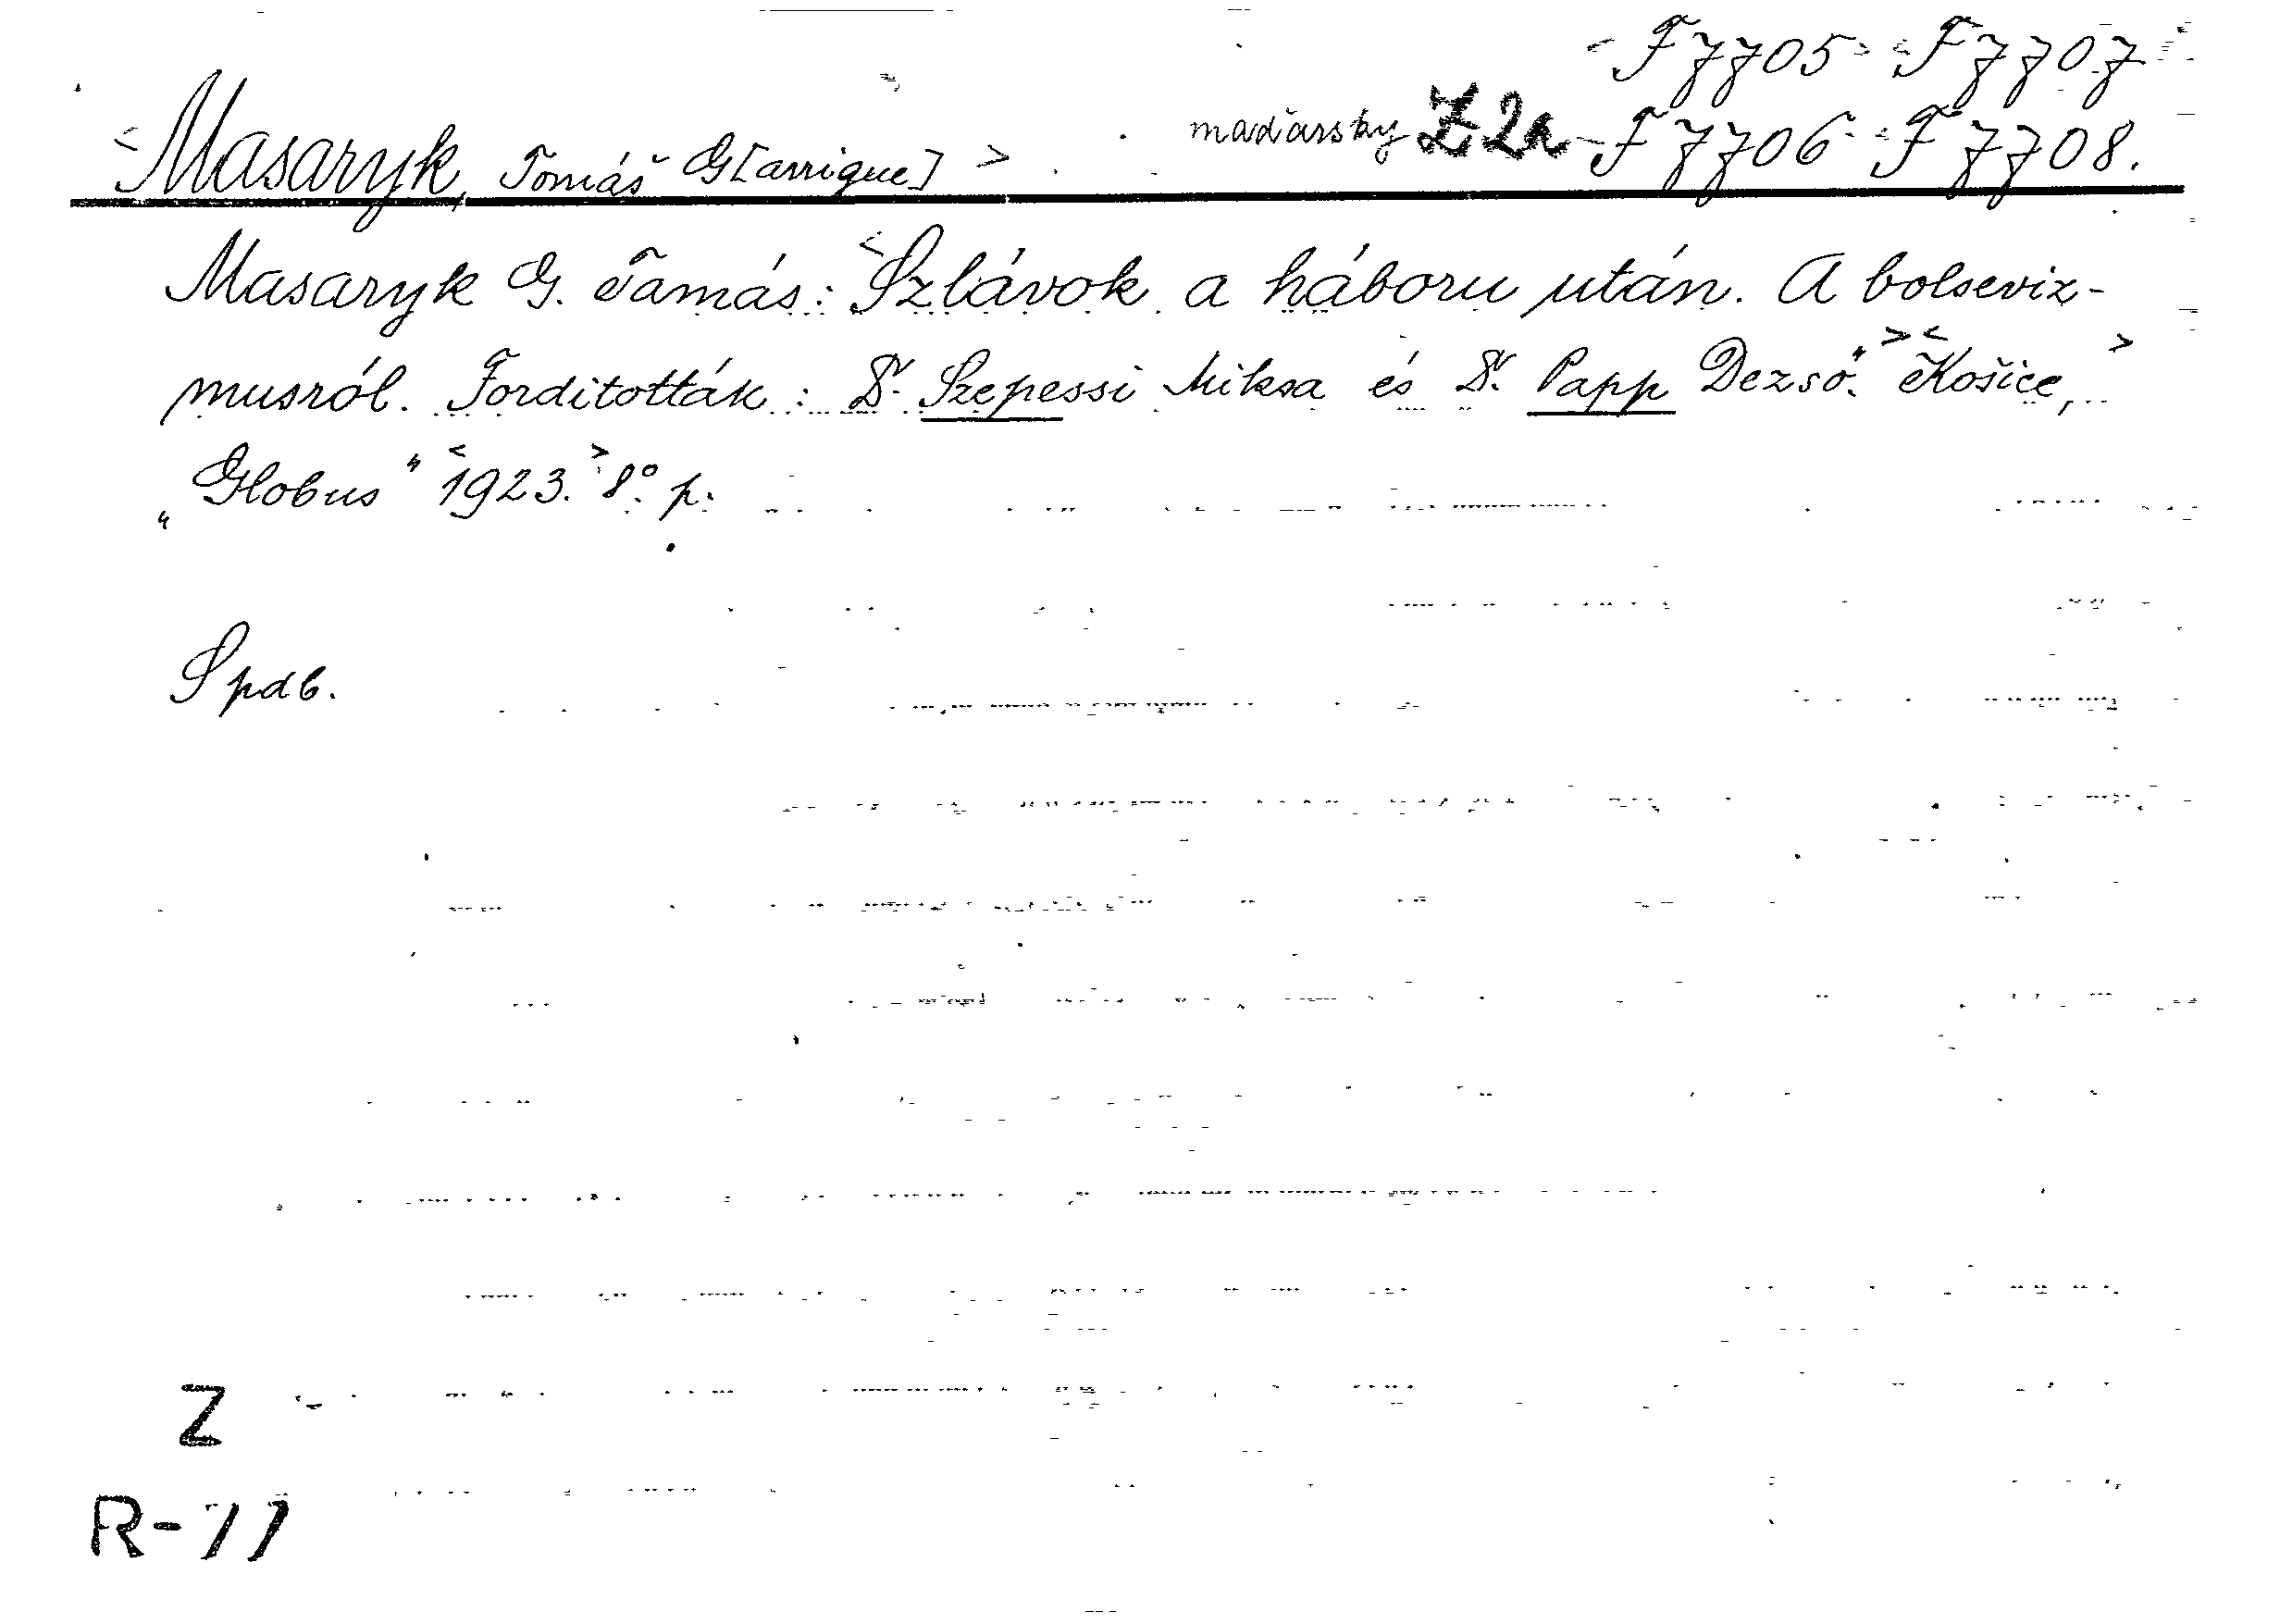 F 7705 F 7707
<Masaryk, Tomáš G[arrigue]> maďarsky Z2a F 7706 F 7708.
Masaryk G. Tamás: <Szlávok a háboru után. A bolseviz-
musról. Forditották: Dr. Szepessi Miksa és Dr. Papp Dezső."> <Košice,>
„Globus" <1923.> 8° p.
Spdb.
Z
R-77